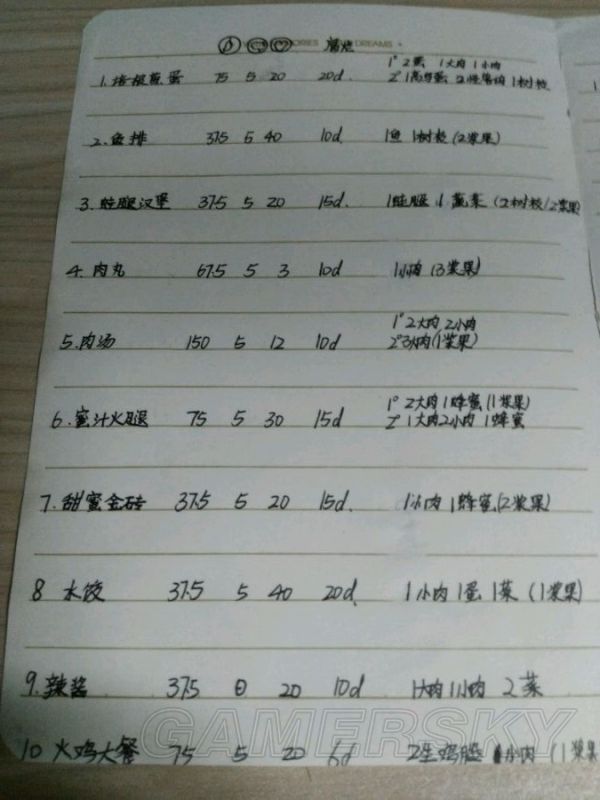 DREAMS 腐烂
1° 2蛋 1大肉 1小肉
1. 培根煎蛋 75 5 20 20d 2° 1高鸟蛋 2怪兽肉 1树枝
2. 鱼排 37.5 5 40 10d 1鱼 1树枝 (2浆果)
3. 蛙腿汉堡 37.5 5 20 15d. 1蛙腿 1蔬菜 (2树枝/2浆果)
4. 肉丸 67.5 5 3 10d 1小肉 (3浆果)
1° 2大肉 2小肉
5. 肉汤 150 5 12 10d 2° 3小肉(1浆果)
1° 2大肉 1蜂蜜 (1浆果)
6. 蜜汁火腿 75 5 30 15d 2° 1大肉2小肉 1蜂蜜
7. 甜蜜金砖 37.5 5 20 15d. 1小肉 1蜂蜜(2浆果)
8 水饺 37.5 5 40 20d. 1小肉 1蛋 1菜 (1浆果)
9. 辣酱 37.5 0 20 10d 1大肉 1小肉 2菜
GAMERSKY
10 火鸡大餐 75 5 20 6d 2生鸡腿 1小肉 (1浆果